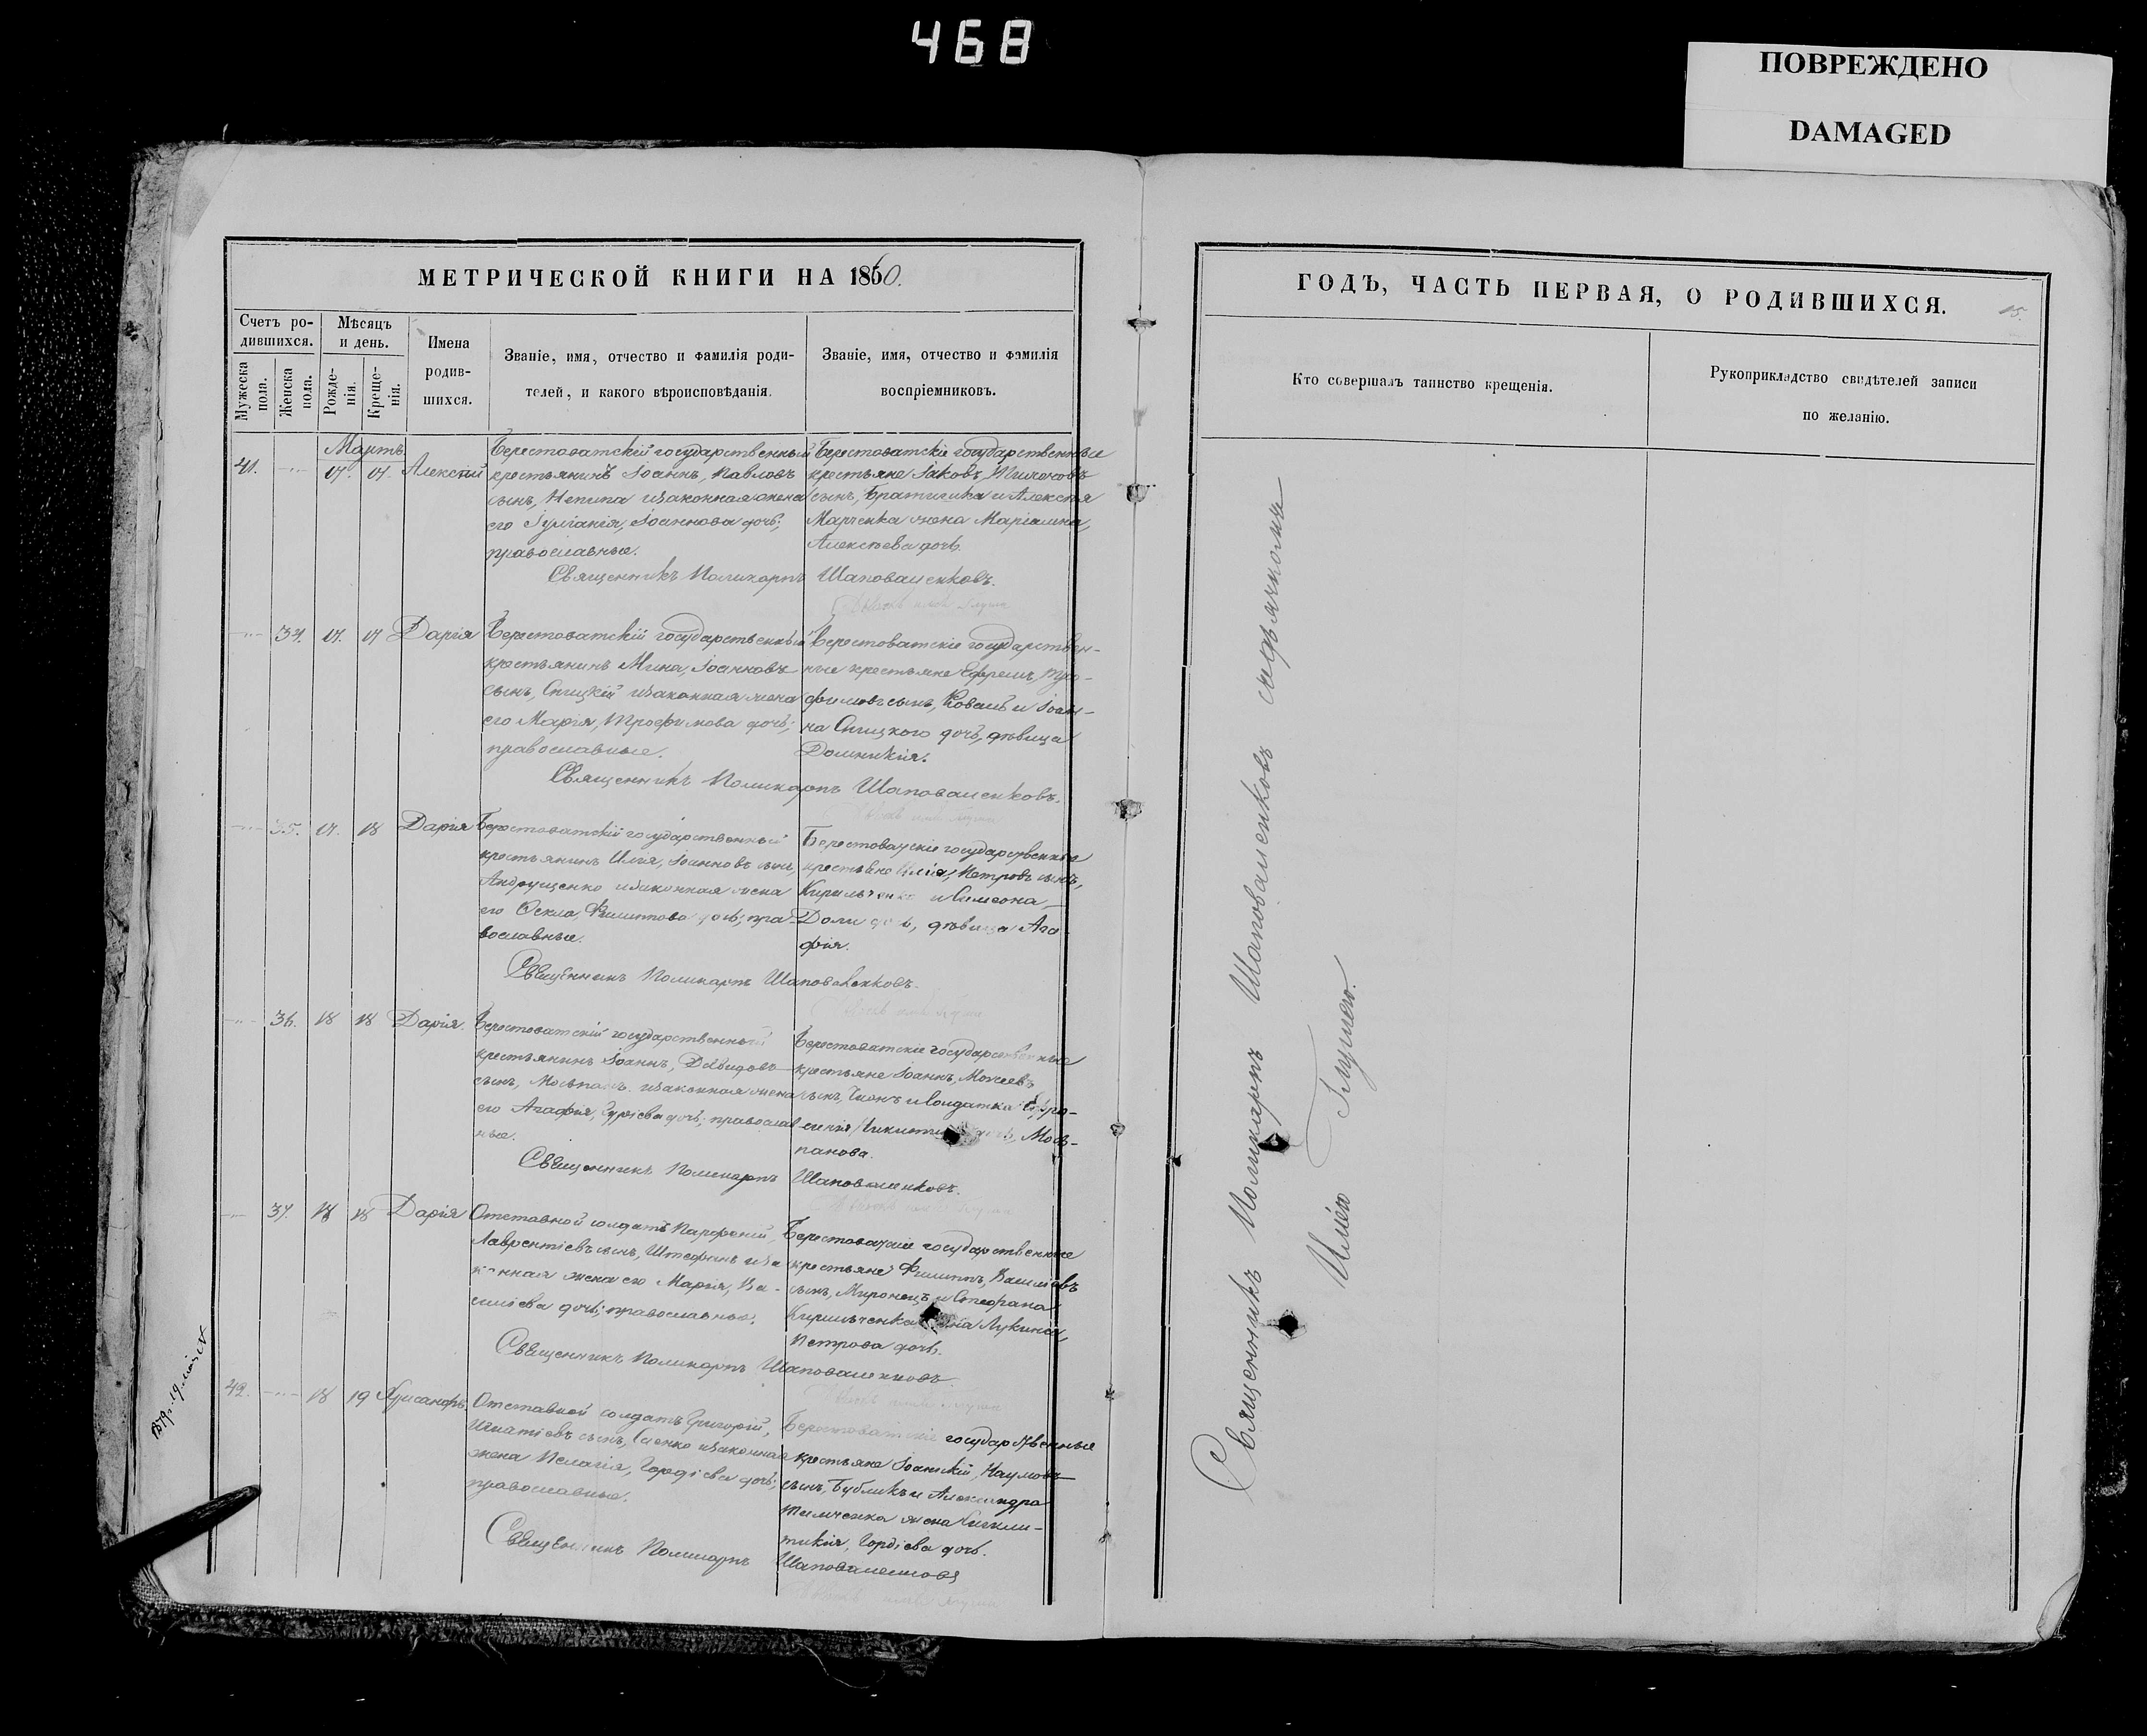 468
ПОВРЕЖДЕНО
DAMAGED
МЕТРИЧЕСКОЙ КНИГИ НА 1860.
Счетъ ро-
дившихся.
Мужеска
пола.
Женска
пола.
Мѣсяцъ
и день.
Рожде-
нія.
Креще-
нія.
Имена
родив-
шихся.
Званіе, имя, отчество и фамилія роди-
телей, и какого вѣроисповѣданія.
Званіе, имя, отчество и фамилія
воспріемниковъ.
Мартъ
41. 17. 17. Алексій
Берестоватскій государственный
крестьянинъ Іоаннъ, Павловъ
сынъ, Непипа и законная жена
его Іуліанія, Іоаннова дочь;
православные.
Берестоватскіе государственные
крестьяне Іаковъ,
сынъ, и Алексѣя
Марченка жена Маріамна,
Алексѣева дочь.
Священникъ Поликарпъ Шаповаленковъ.
34. 17. 17 Дарія
Берестоватскій государственный
крестьянинъ Мина, Іоанновъ
сынъ, Спицкій и законная жена
его Марія, Трофимова дочь;
православные.
Берестоватскіе государствен-
ные крестьяне Ефремъ, Тро-
фимовъ сынъ, Коваль и Іоан-
на Спицкого дочь, дѣвица
Домникія.
Священникъ Поликарпъ Шаповаленковъ.
35. 17. 18 Дарія
Берестоватскій государственный
крестьянинъ Илія, Іоанновъ сынъ,
Андрущенко и законная жена
его Фекла, Филиппова дочь; пра-
вославные.
Берестоватскіе государственные
крестьяне Илія, Петровъ сынъ,
Кирильченко и Симеона
дѣвица Ага-
фія.
Священникъ Поликарпъ Шаповаленковъ.
36. 18 18 Дарія.
Берестоватскій государственный
крестьянинъ Іоаннъ, Давидовъ
сынъ, Мосьпанъ и законная жена
его Агафія, Гуріева дочь; православ
ные.
Берестоватскіе государственные
крестьяне Іоаннъ, Моисеевъ
сынъ, и солдатка Евфро-
синія дочь, Мось-
панова.
Священникъ Поликарпъ Шаповаленковъ.
37. 18 18 Дарія
Отставной солдатъ Парфеній,
Лаврентіевъ сынъ, Штефанъ и за
конная жена его Марія, Ва-
силіева дочь; православные.
Берестоватскіе государственные
крестьяне Филиппъ, Василіевъ
сынъ, Миронецъ и Стефана
Кирильченка жена Лукина,
Петрова дочь.
Священникъ Поликарпъ Шаповаленковъ.
42. 18 19 Хрисанфъ.
Отставной солдатъ Григорій,
Игнатіевъ сынъ, и законная
жена Пелагія, Гордіева дочь;
православные.
Берестоватскіе государственные
крестьяне Іоанникій, Наумовъ
сынъ, Бубликъ и Александра
жена Сигкли-
тикія, Гордіева дочь.
Священникъ Поликарпъ Шаповаленковъ
ГОДЪ, ЧАСТЬ ПЕРВАЯ, О РОДИВШИХСЯ.
15.
Кто совершалъ таинство крещенія.
Рукоприкладство свидѣтелей записи
по желанію.
Священникъ Поликарпъ Шаповаленковъ съ дьячкомъ
Иліею Глушею.